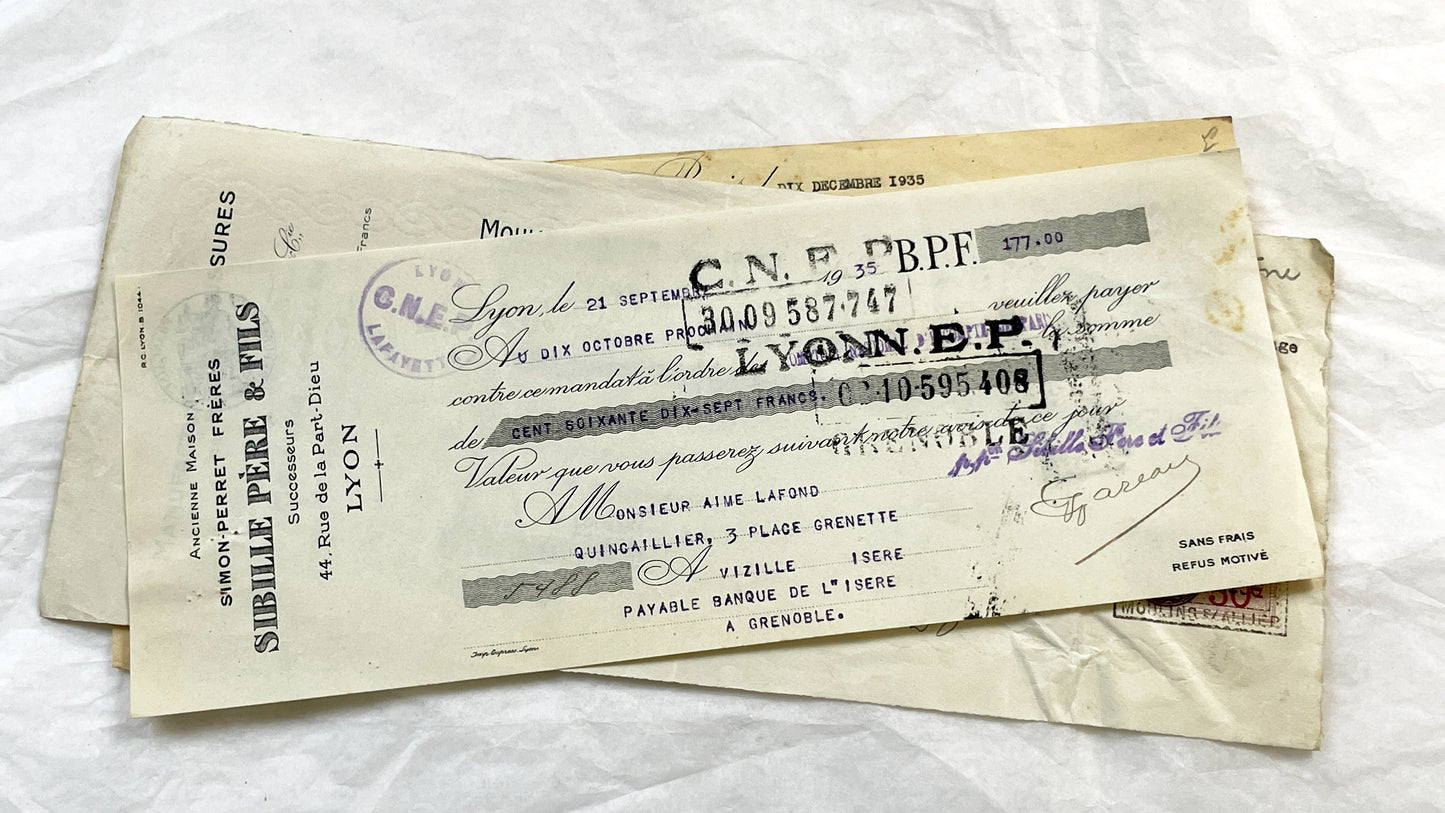 SURES
& Cie
Francs
DIX DECEMBRE 1935
R.C. LYON B 1044
ANCIENNE MAISON
SIMON-PERRET FRÈRES
SIBILLE PÈRE & FILS
Successeurs
44, Rue de la Part-Dieu
LYON
LYON
C.N.E.
LAFAYETTE
C. N. E. P.
Lyon, le 21 SEPTEMBRE 1935 B.P.F. 177.00
3009 587·747
AU DIX OCTOBRE PROCHAIN veuillez payer
LYON N.E.P.
contre ce mandat à l'ordre la somme
10·595 408
de CENT SOIXANTE DIX-SEPT FRANCS.
GRENOBLE
Valeur que vous passerez suivant notre avis de ce jour
p.pon Sibille Père et Fils
A MONSIEUR AIME LAFOND
QUINCAILLIER, 3 PLACE GRENETTE
A VIZILLE ISERE
PAYABLE BANQUE DE L"ISERE
A GRENOBLE.
SANS FRAIS
REFUS MOTIVÉ
Imp. Express. Lyon
MOULINS S/ALLIER